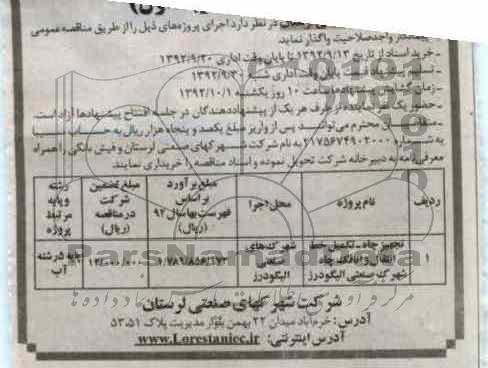 در نظر دارد اجرای پروژه‌های ذیل را از طریق مناقصه عمومی
واجد صلاحیت واگذار نماید
- خرید اسناد از تاریخ ۱۳۹۲/۹/۱۳ تا پایان وقت اداری ۱۳۹۲/۹/۲۰
پایان وقت اداری ۱۳۹۲/۹/۳۰
- زمان گشایش پیشنهادها ساعت ۱۰ روز یکشنبه ۱۳۹۲/۱۰/۱
- حضور یک نفر نماینده از طرف هر یک از پیشنهاددهندگان در جلسه افتتاح پیشنهادها آزاد است.
محترم می‌توانند پس از واریز مبلغ یکصد و پنجاه هزار ریال به حساب
به شماره ۲۱۷۵۶۷۴۹۰۲۰۰۰ به نام شرکت شهرکهای صنعتی لرستان و فیش بانکی را همراه
معرفی‌نامه به دبیرخانه شرکت تحویل نموده و اسناد مناقصه را خریداری نمایند.
ردیف
نام پروژه
محل اجرا
مبلغ برآورد
بر اساس
فهرست بها سال ۹۲
(ریال)
مبلغ تضمین
شرکت
در مناقصه
(ریال)
رشته
و پایه
مرتبط
پروژه
۱
تجهیز چاه - تکمیل خط
انتقال و اتاقک چاه
شهرک صنعتی الیگودرز
شهرک‌های
صنعتی
الیگودرز
پایه ۵ رشته
آب
ParsNamadData
شرکت شهرکهای صنعتی لرستان
آدرس: خرم‌آباد میدان ۲۲ بهمن بلوار مدیریت پلاک ۵۳،۵۱
آدرس اینترنتی: www.Lorestaniec.ir